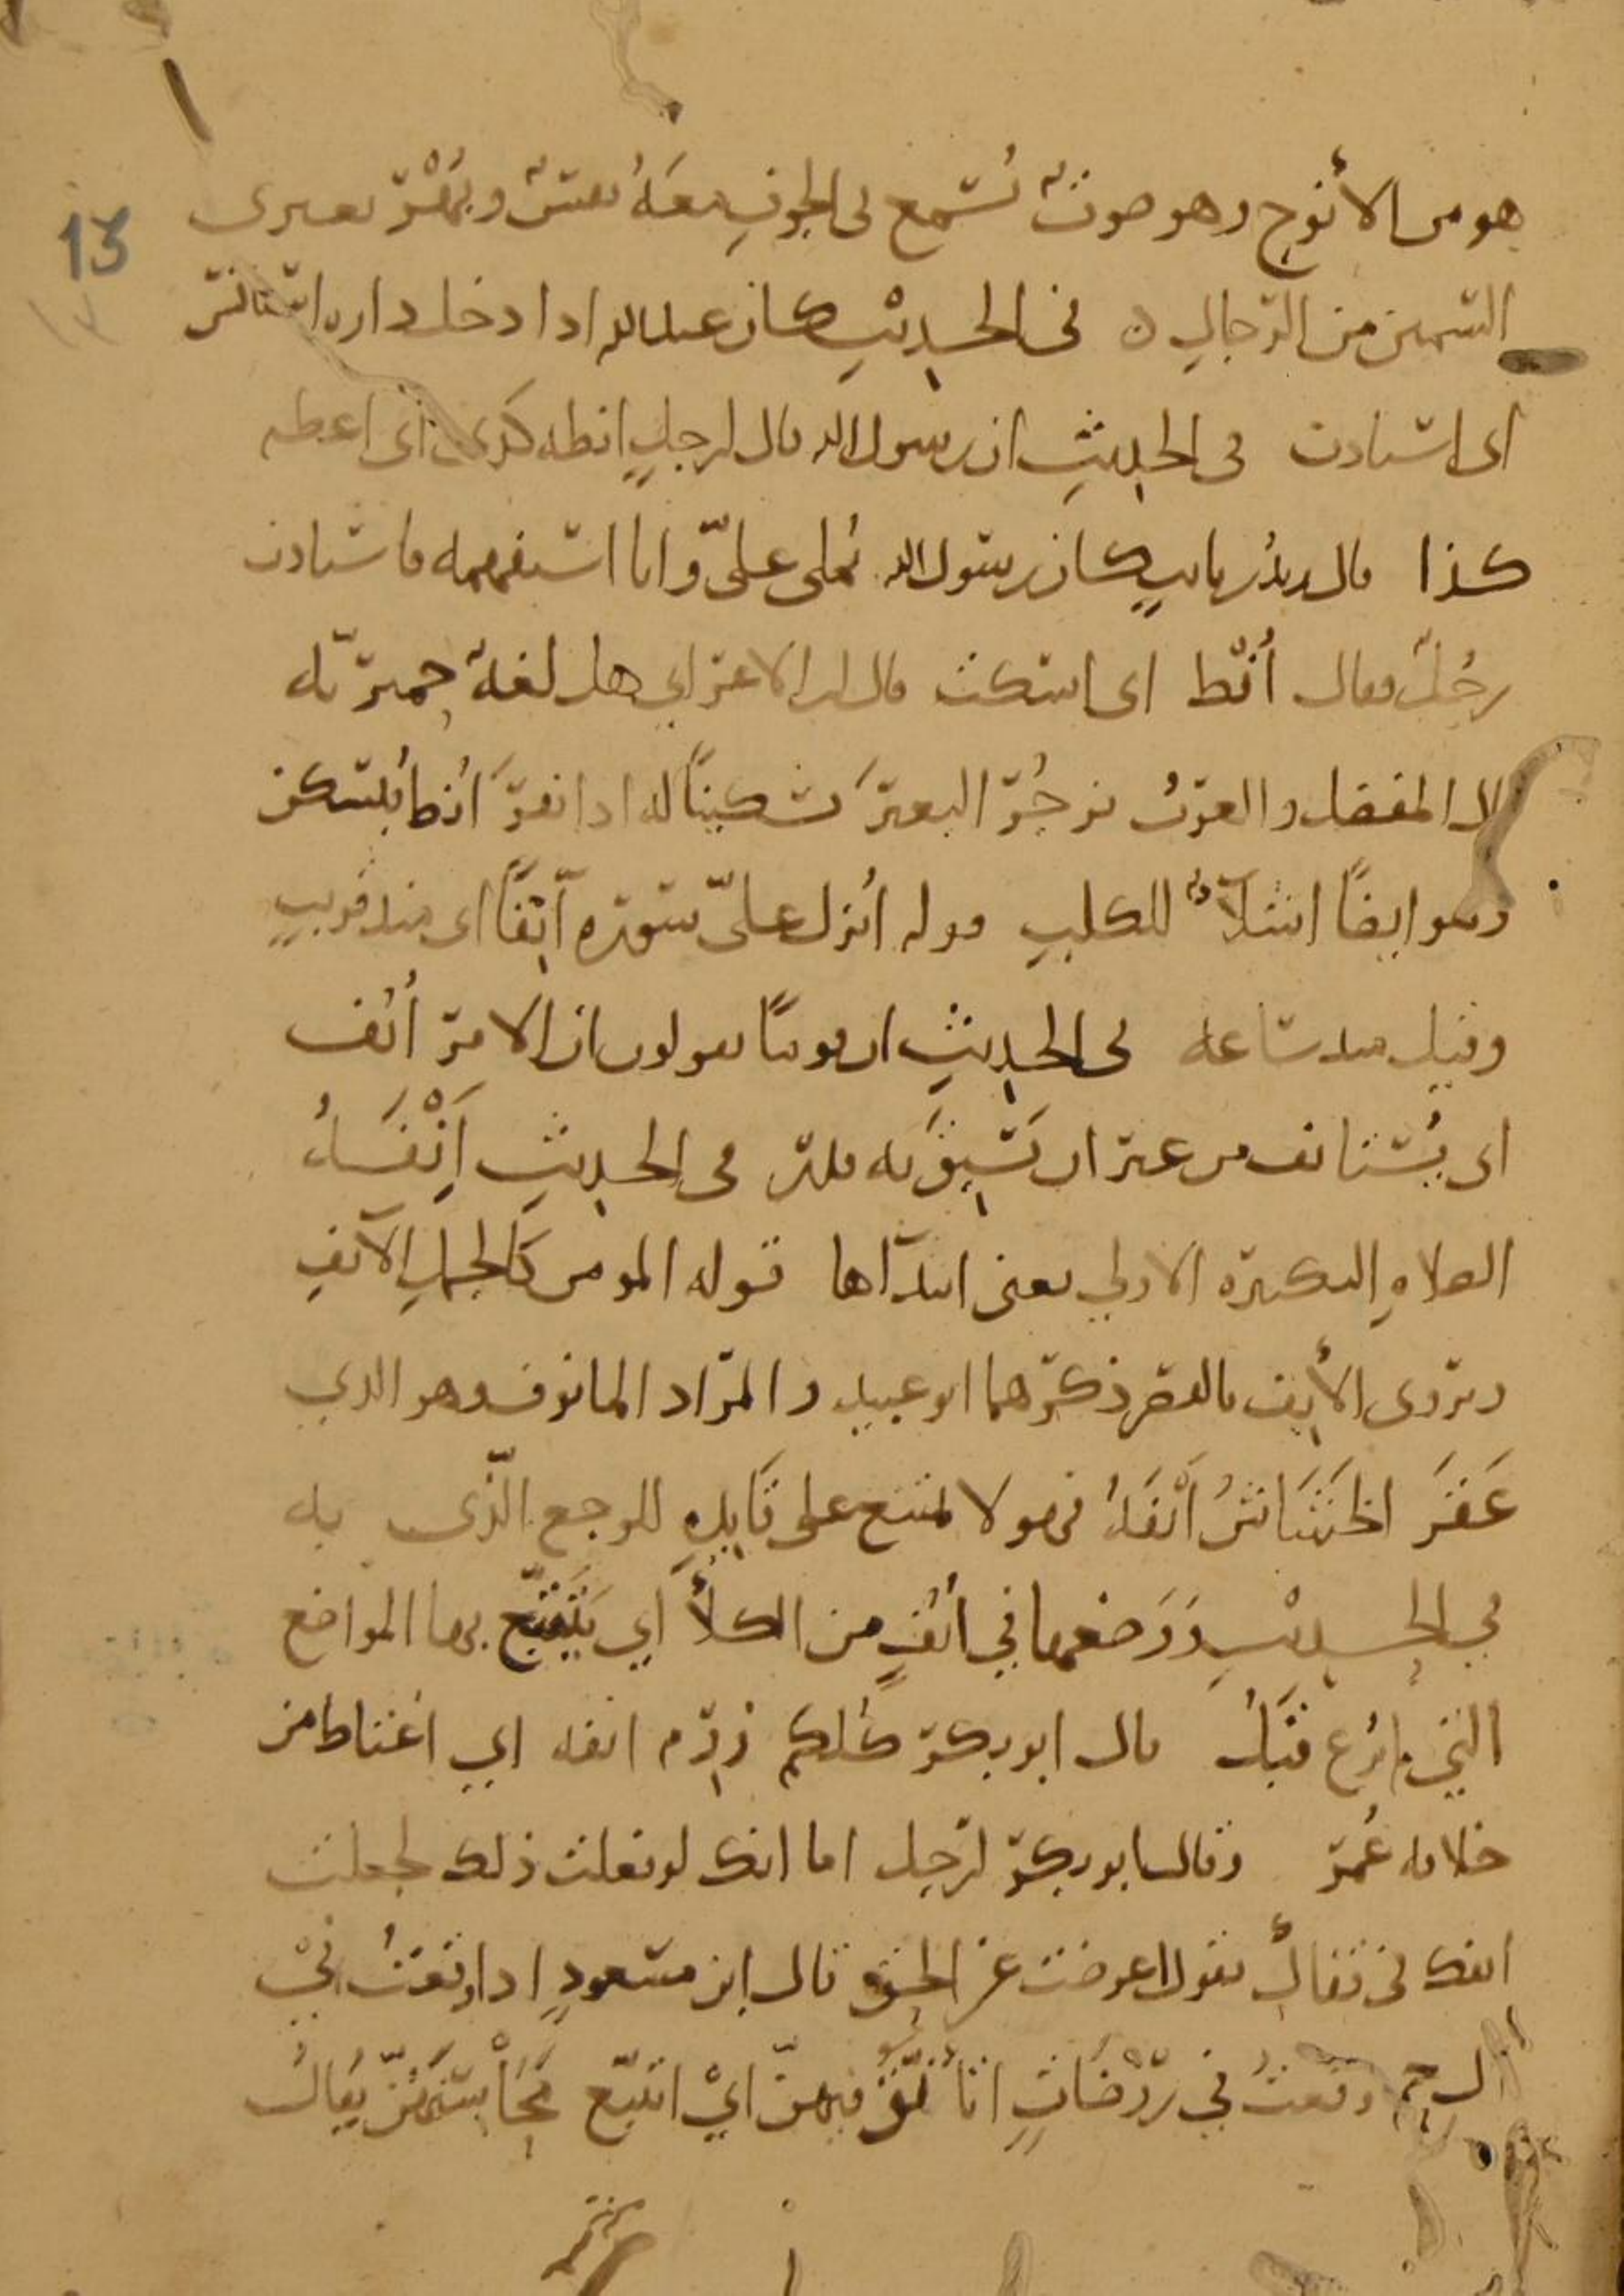 13
هو من الأنوح وهو صوتٌ يُسمع في الجوفِ معَهُ نفسٌ وبُهْرٌ يعتري
السمين من الرجالِ في الحديثِ كان عبدالله اذا دخل داره استأنس
اى استأذن في الحديثِ ان رسول الله قال لرجلٍ انطه كذى اى اعطه
كذا قال زيدُ بن ثابتٍ كان رسول الله يُملى علىّ وانا استفهمه فاستأذن
رجُلٌ فقال أنْط اى اسكت قال ابن الاعرابى هذه لغةٌ حميريّة
قال المفضل والعربُ تزجُرُ البعيرَ تسكينًا له اذا نفرَ أنط فيسكن
وهو ايضًا اشلآءٌ للكلبِ قوله اُنزل علىّ سورة آنِفًا اى منذ قريبٍ
وقيل منذ ساعة في الحديثِ ان قومًا يقولون ان الامر أُنُف
اى يُستانف من غير ان يَسبِقَ به قدر في الحديثِ اَنْفَةُ
الصلاةِ التكبيرة الاولى يعنى ابتدآءها قوله المومن كَالجملِ الآنِفِ
ويروى الأنِف بالقصر ذكرهما ابو عبيد والمراد المانوف وهو الذى
عَقَرَ الخَشَاشُ أَنْفَهُ فهو لا يمتنع على قَايِدِهِ للوجع الّذى به
في الحديثِ وَوَضعها في اُنُفٍ من الكلأ أي يَتَتَبّع بها المواضع
التي لم تُرع قبْلُ قال ابو بكر كُلكم وَرِم انفه اي اغتاظ من
خلافة عُمر وقال ابو بكر لرجل اما انك لو فعلت ذلك لجعلت
انفك في قفاكَ يقول اعرضت عن الحق قال ابن مسعودٍ اذا وقعتُ في
ال حم وقعتُ في روْضَاتٍ اتأنّقُ فيهنّ ايْ اتتبّع محَاسِنَهُنّ يُقالُ